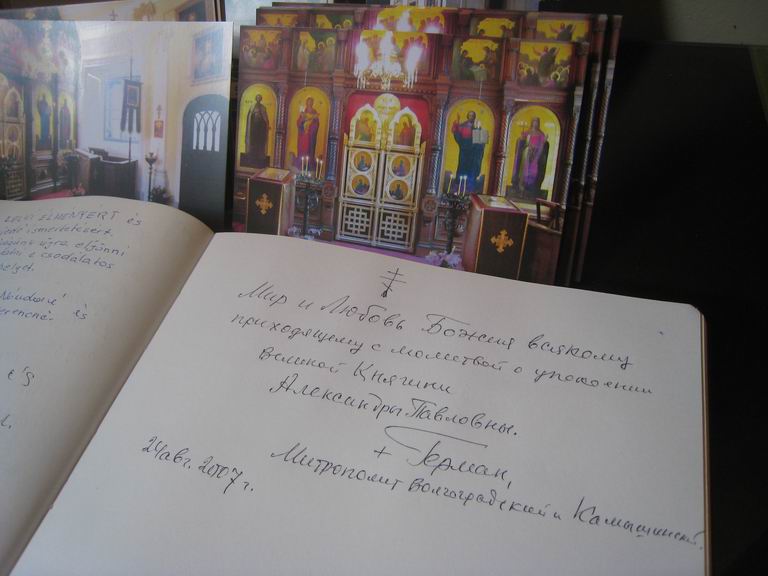 LELKI ÉLMÉNYÉRT és
ismertetésért.
újra eljönni
e csodálatos
helyet.
és
és
Мир и Любовь Божия всякому
приходящему с молитвой о упокоении
Великой Княгини
Александры Павловны.
+ Герман,
Митрополит Волгоградский и Камышинский.
24 авг. 2007 г.